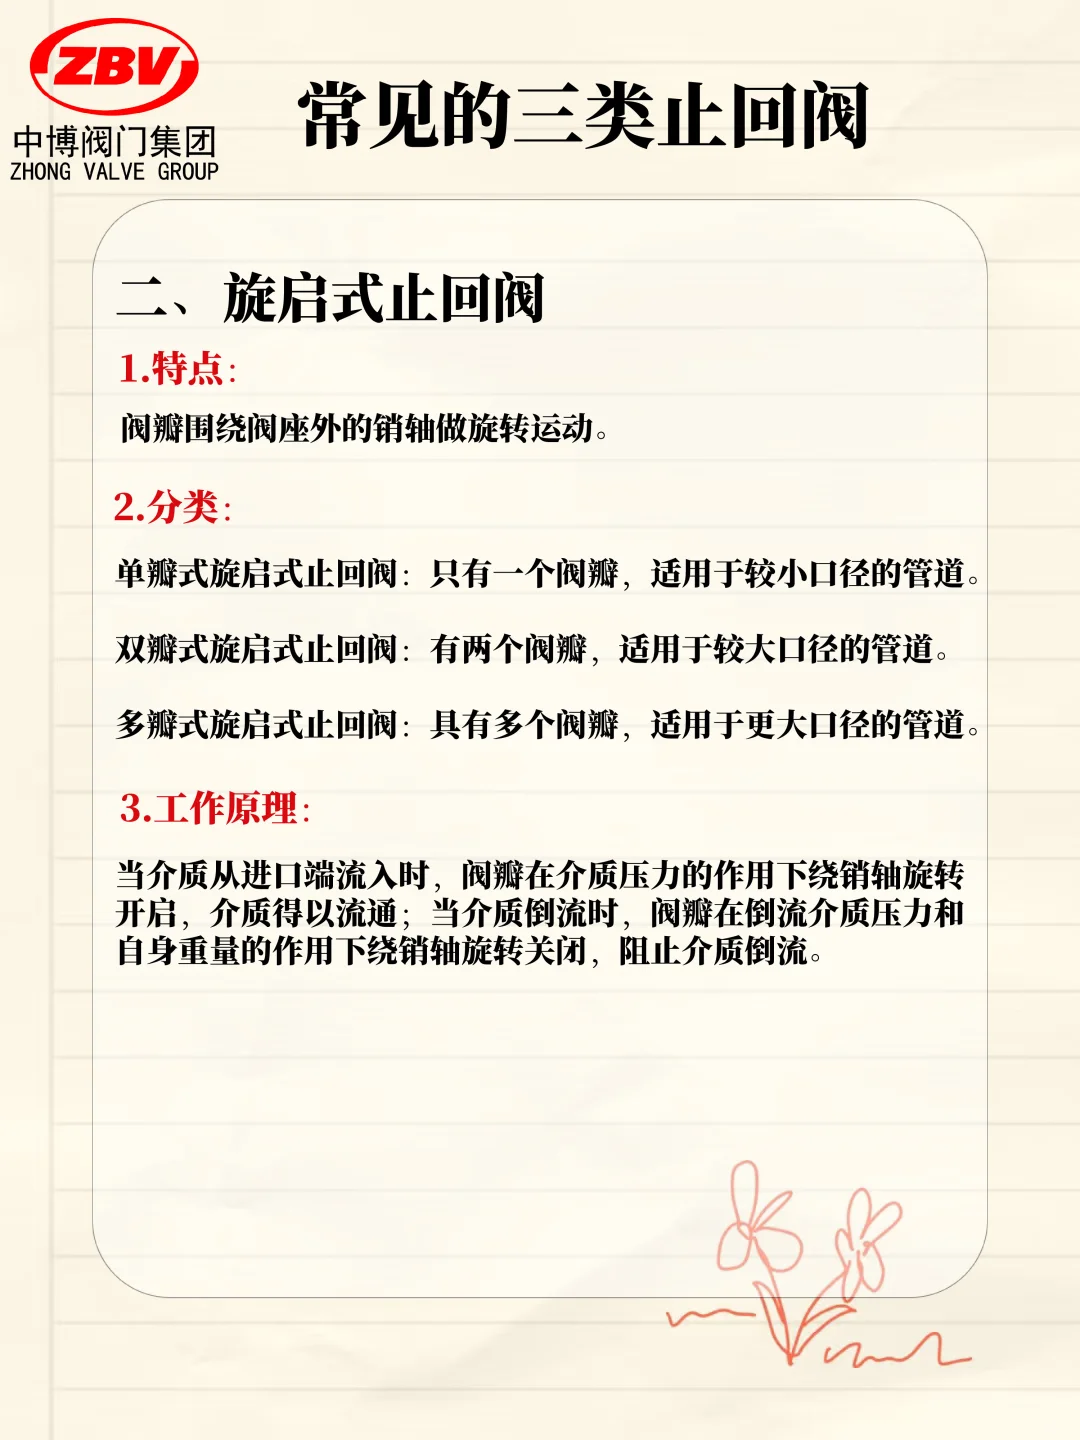 ZBV
中博阀门集团
ZHONG VALVE GROUP
常见的三类止回阀
二、旋启式止回阀
1.特点：
阀瓣围绕阀座外的销轴做旋转运动。
2.分类：
单瓣式旋启式止回阀：只有一个阀瓣，适用于较小口径的管道。
双瓣式旋启式止回阀：有两个阀瓣，适用于较大口径的管道。
多瓣式旋启式止回阀：具有多个阀瓣，适用于更大口径的管道。
3.工作原理：
当介质从进口端流入时，阀瓣在介质压力的作用下绕销轴旋转
开启，介质得以流通；当介质倒流时，阀瓣在倒流介质压力和
自身重量的作用下绕销轴旋转关闭，阻止介质倒流。